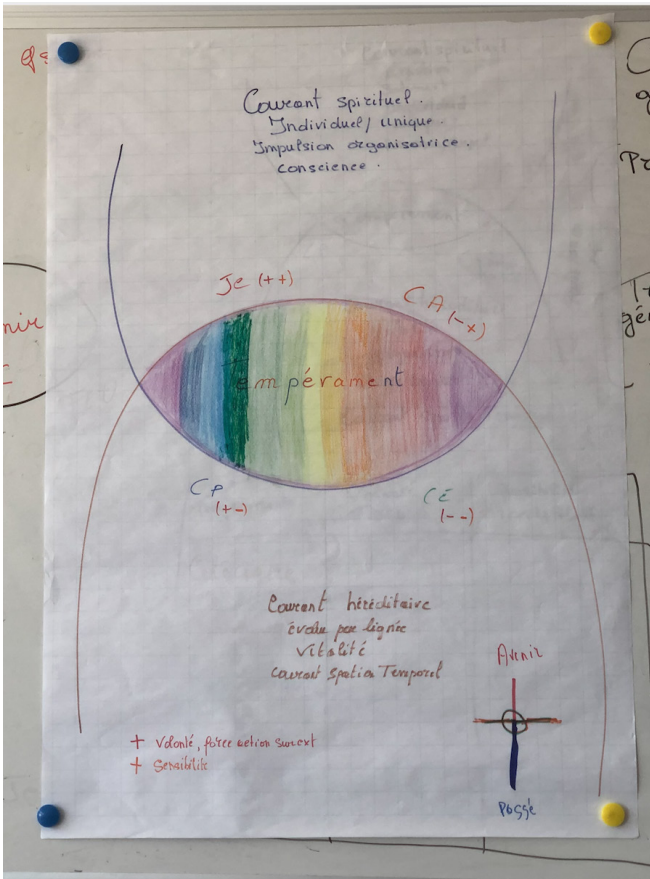 Courant spirituel.
Individuel/unique.
Impulsion organisatrice.
conscience.
Je (++)
CA (-+)
Tempérament
CP
(+-)
CE
(--)
Courant héréditaire
évolu par lignée
Vitalité
courant spatio Temporel
Avenir
+ Volonté, force action sur ext
+ Sensibilité
Passé
nir